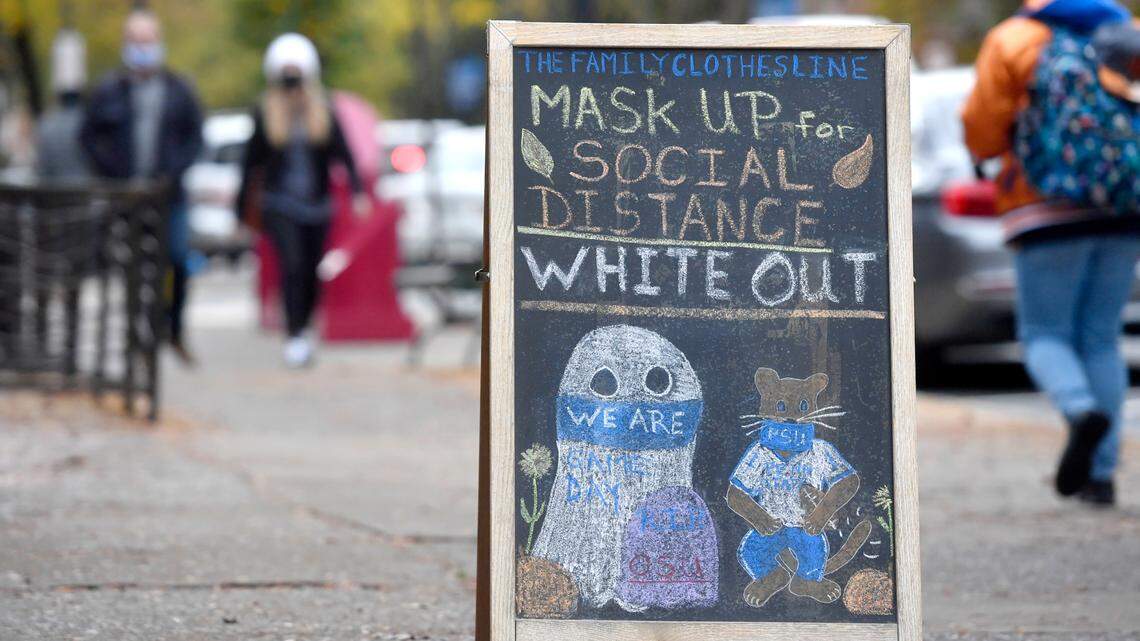 THE FAMILY CLOTHESLINE
MASK UP for
SOCIAL
DISTANCE
WHITE OUT
WE ARE
GAME
DAY
R.I.P
OSU
PSU
PENN
STATE